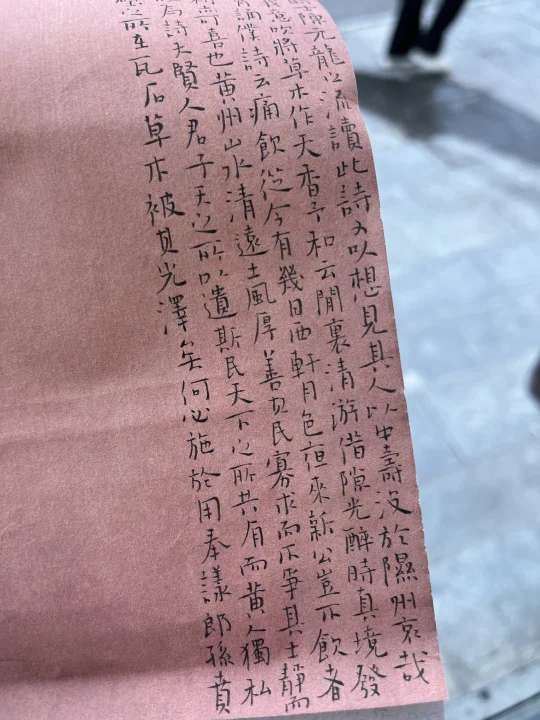 陳元龍之流讀此詩可以想見其人以中壽沒於隰州哀哉
意吹將草木作天香予和云閒裏清游借隙光醉時真境發
誦僕詩云痛飲從今有幾日西軒月色夜來新公豈不飲者
可喜也黃州山水清遠土風厚善其民寡求而不爭其士靜而
為詩夫賢人君子天之所以遺斯民天下之所共有而黃人獨私
之所在瓦石草木被其光澤矣何必施於用奉議郎孫賁